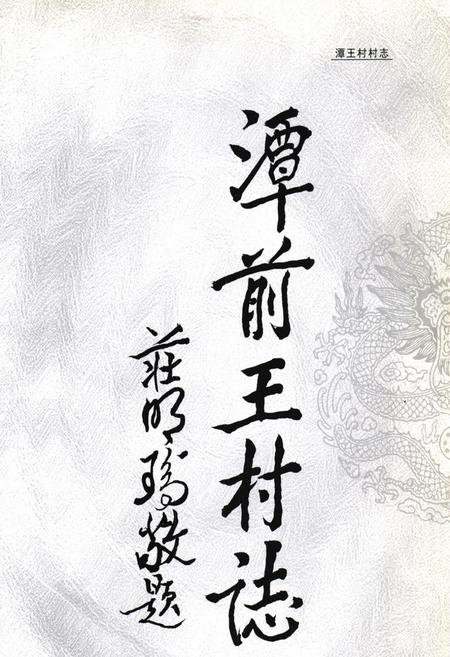 潭王村村志
潭前王村誌
莊明瑞敬题